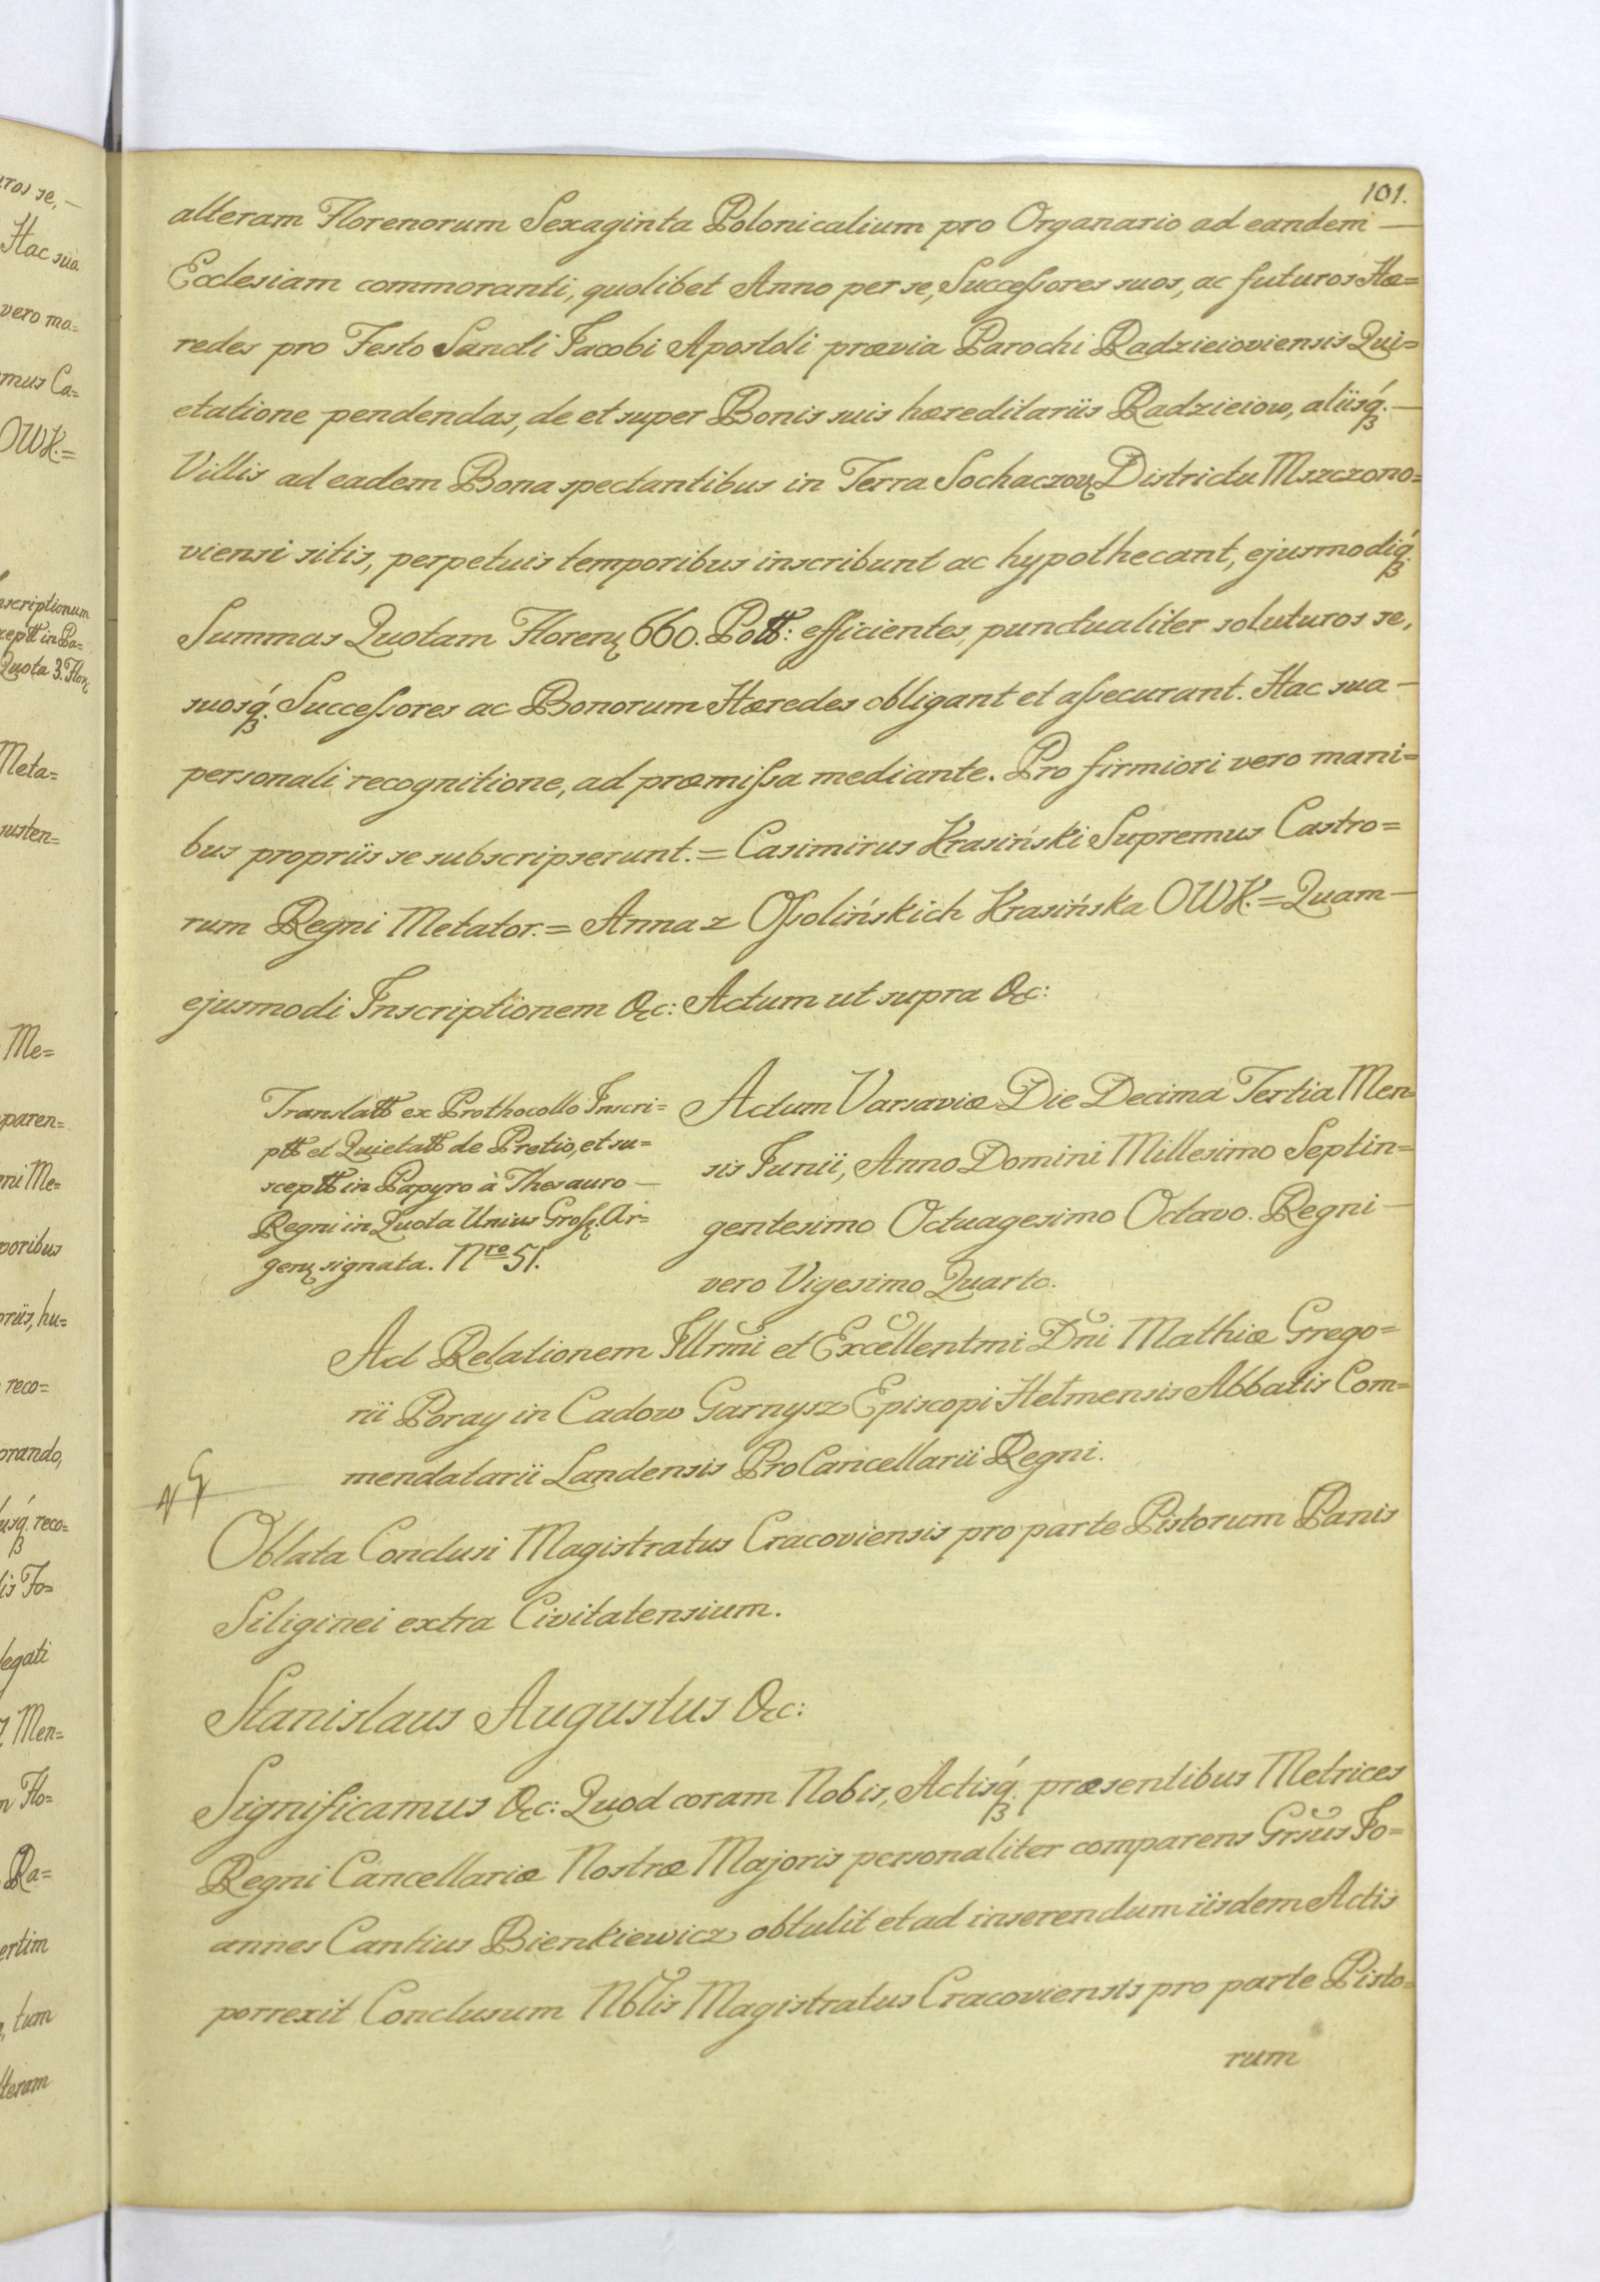 101.
alteram Florenorum Sexaginta Polonicalium pro Organario ad eandem —
Ecclesiam commoranti, quolibet Anno per se, Successores suos, ac futuros Hæ=
redes pro Festo Sancti Jacobi Apostoli prævia Parochi Radzieioviensis Qui=
etatione pendendas, de et super Bonis suis hæreditariis Radzieiow, aliisq́. —
Villis ad eadem Bona spectantibus in Terra Sochaczov Districtu Mszczono=
viensi sitis, perpetuis temporibus inscribunt ac hypothecant, ejusmodiq́.
Summas Quotam Floren 660. Poll: efficientes, punctualiter soluturos se,
suosq́. Successores ac Bonorum Hæredes obligant et assecurant. Hac sua —
personali recognitione, ad præmissa mediante. Pro firmiori vero mani=
bus propriis se subscripserunt. = Casimirus Krasiński Supremus Castro=
rum Regni Metator. = Anna z Ossolińskich Krasińska OWK. = Quam —
ejusmodi Inscriptionem &c: Actum ut supra &c:
Translatt ex Prothocollo Inscri=
ptt et Quietatt de Pretio, et su=
sceptt in Papyro à Thesauro —
Regni in Quota Unius Gross Ar=
gen signata. Nro 51.
Actum Varsaviæ Die Decima Tertia Men
sis Junii, Anno Domini Millesimo Septin=
gentesimo Octuagesimo Octavo. Regni —
vero Vigesimo Quarto.
Ad Relationem Illrmi et Excellentmi Dni Mathiæ Grego=
rii Poray in Cadow Garnysz Episcopi Hełmensis Abbatis Com=
mendatarii Landensis ProCancellarii Regni.
Oblata Conclusi Magistratus Cracoviensis pro parte Pistorum Panis
Siliginei extra Civitatensium.
Stanislaus Augustus &c:
Significamus &c: Quod coram Nobis, Actisq́. præsentibus Metrices
Regni Cancellariæ Nostræ Majoris personaliter comparens Grsus Jo=
annes Cantius Bienkiewicz obtulit et ad inserendum iisdem Actis
porrexit Conclusum Nblis Magistratus Cracoviensis pro parte Pisto=
rum